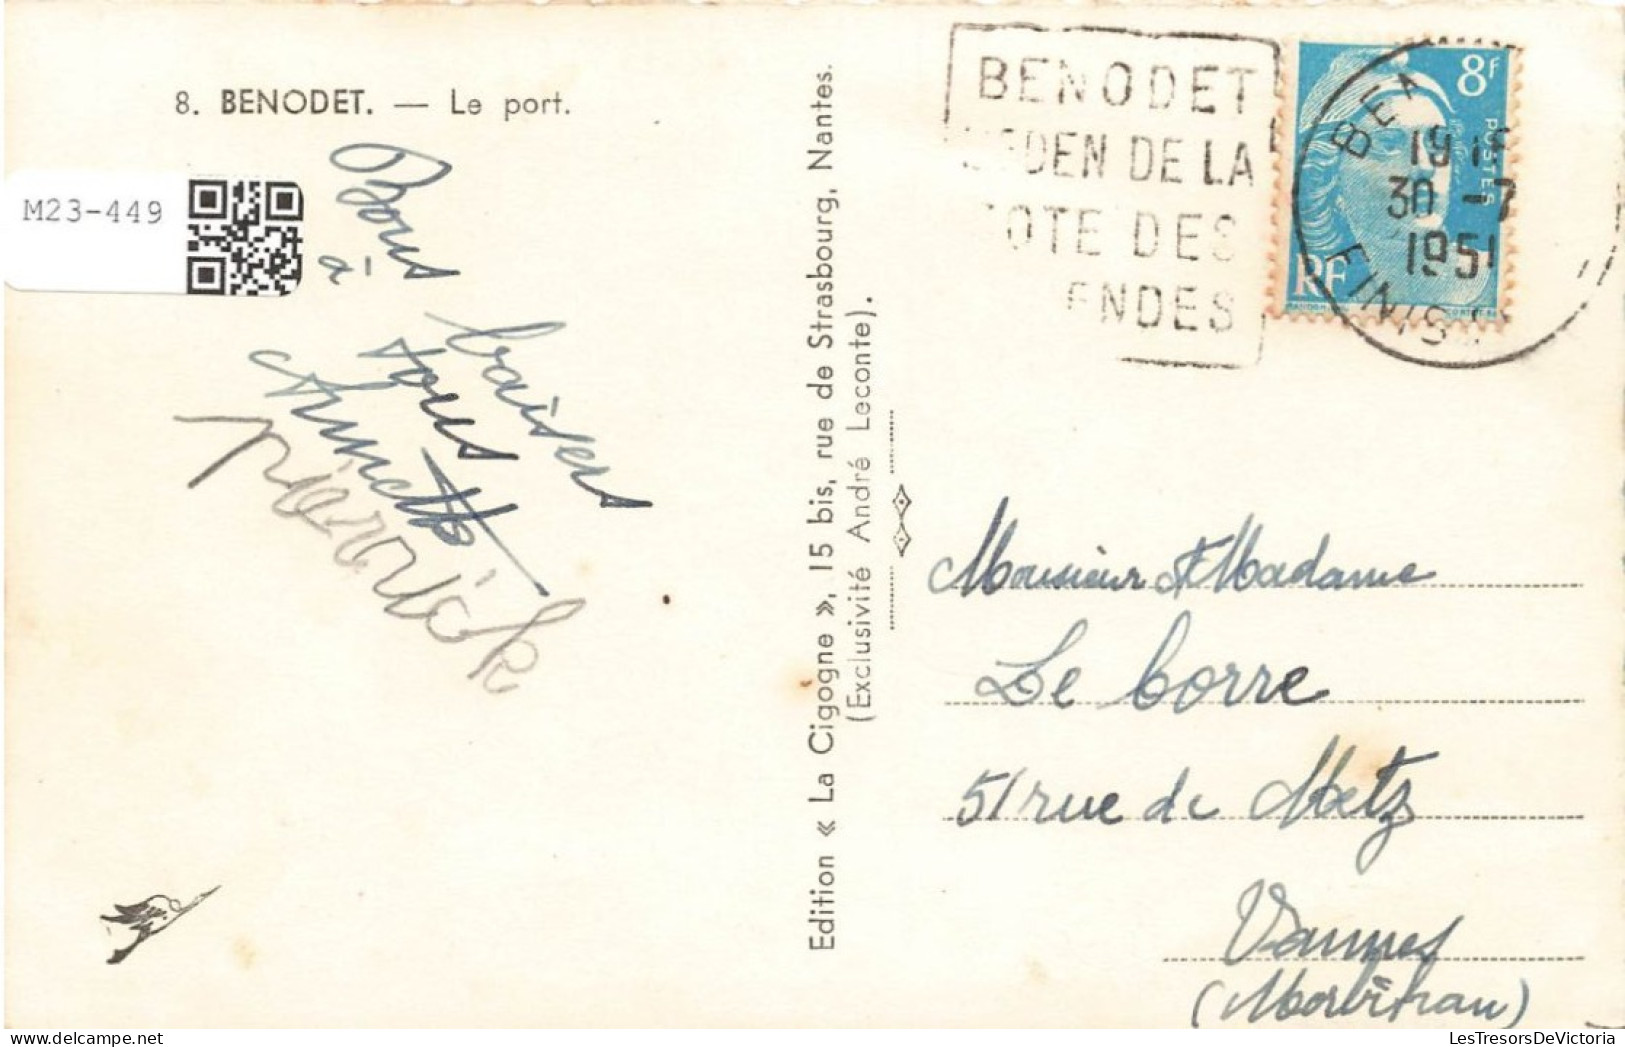 8. BENODET. — Le port.
M23-449
Bons baisers
à tous
Annette
pierrick
Edition « La Cigogne », 15 bis, rue de Strasbourg, Nantes.
(Exclusivité André Leconte).
BENODET
L'EDEN DE LA
COTE DES
ENDES
8F
POSTES
RF
BE
19 15
30 -7
1951
FINIS
Monsieur & Madame
Le Corre
51 rue de Metz
Vannes
(Morbihan)
LesTresorsDeVictoria